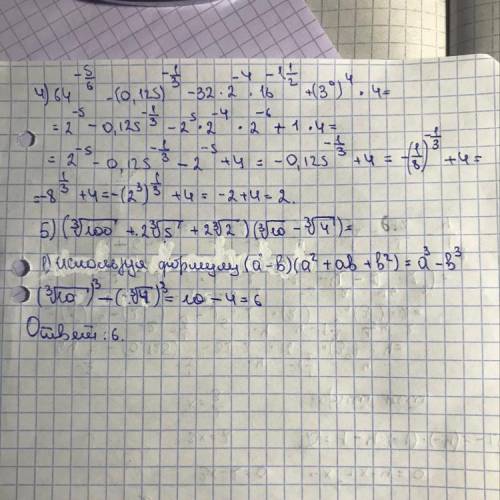 4) 64^(-5/6) - (0,125)^(-1/3) - 32 · 2^(-4) · 16^(-1 1/2) + (3^0)^4 · 4 =
= 2^(-5) - 0,125^(-1/3) - 2^5 · 2^(-4) · 2^(-6) + 1 · 4 =
= 2^(-5) - 0,125^(-1/3) - 2^(-5) + 4 = -0,125^(-1/3) + 4 = -(1/8)^(-1/3) + 4 =
= -8^(1/3) + 4 = -(2^3)^(1/3) + 4 = -2 + 4 = 2.
5) (∛100 + 2∛5 + 2∛2)(∛10 - ∛4) = 6.
используя формулу (a - b)(a² + ab + b²) = a³ - b³
(∛10)³ - (∛4)³ = 10 - 4 = 6
Ответ: 6.